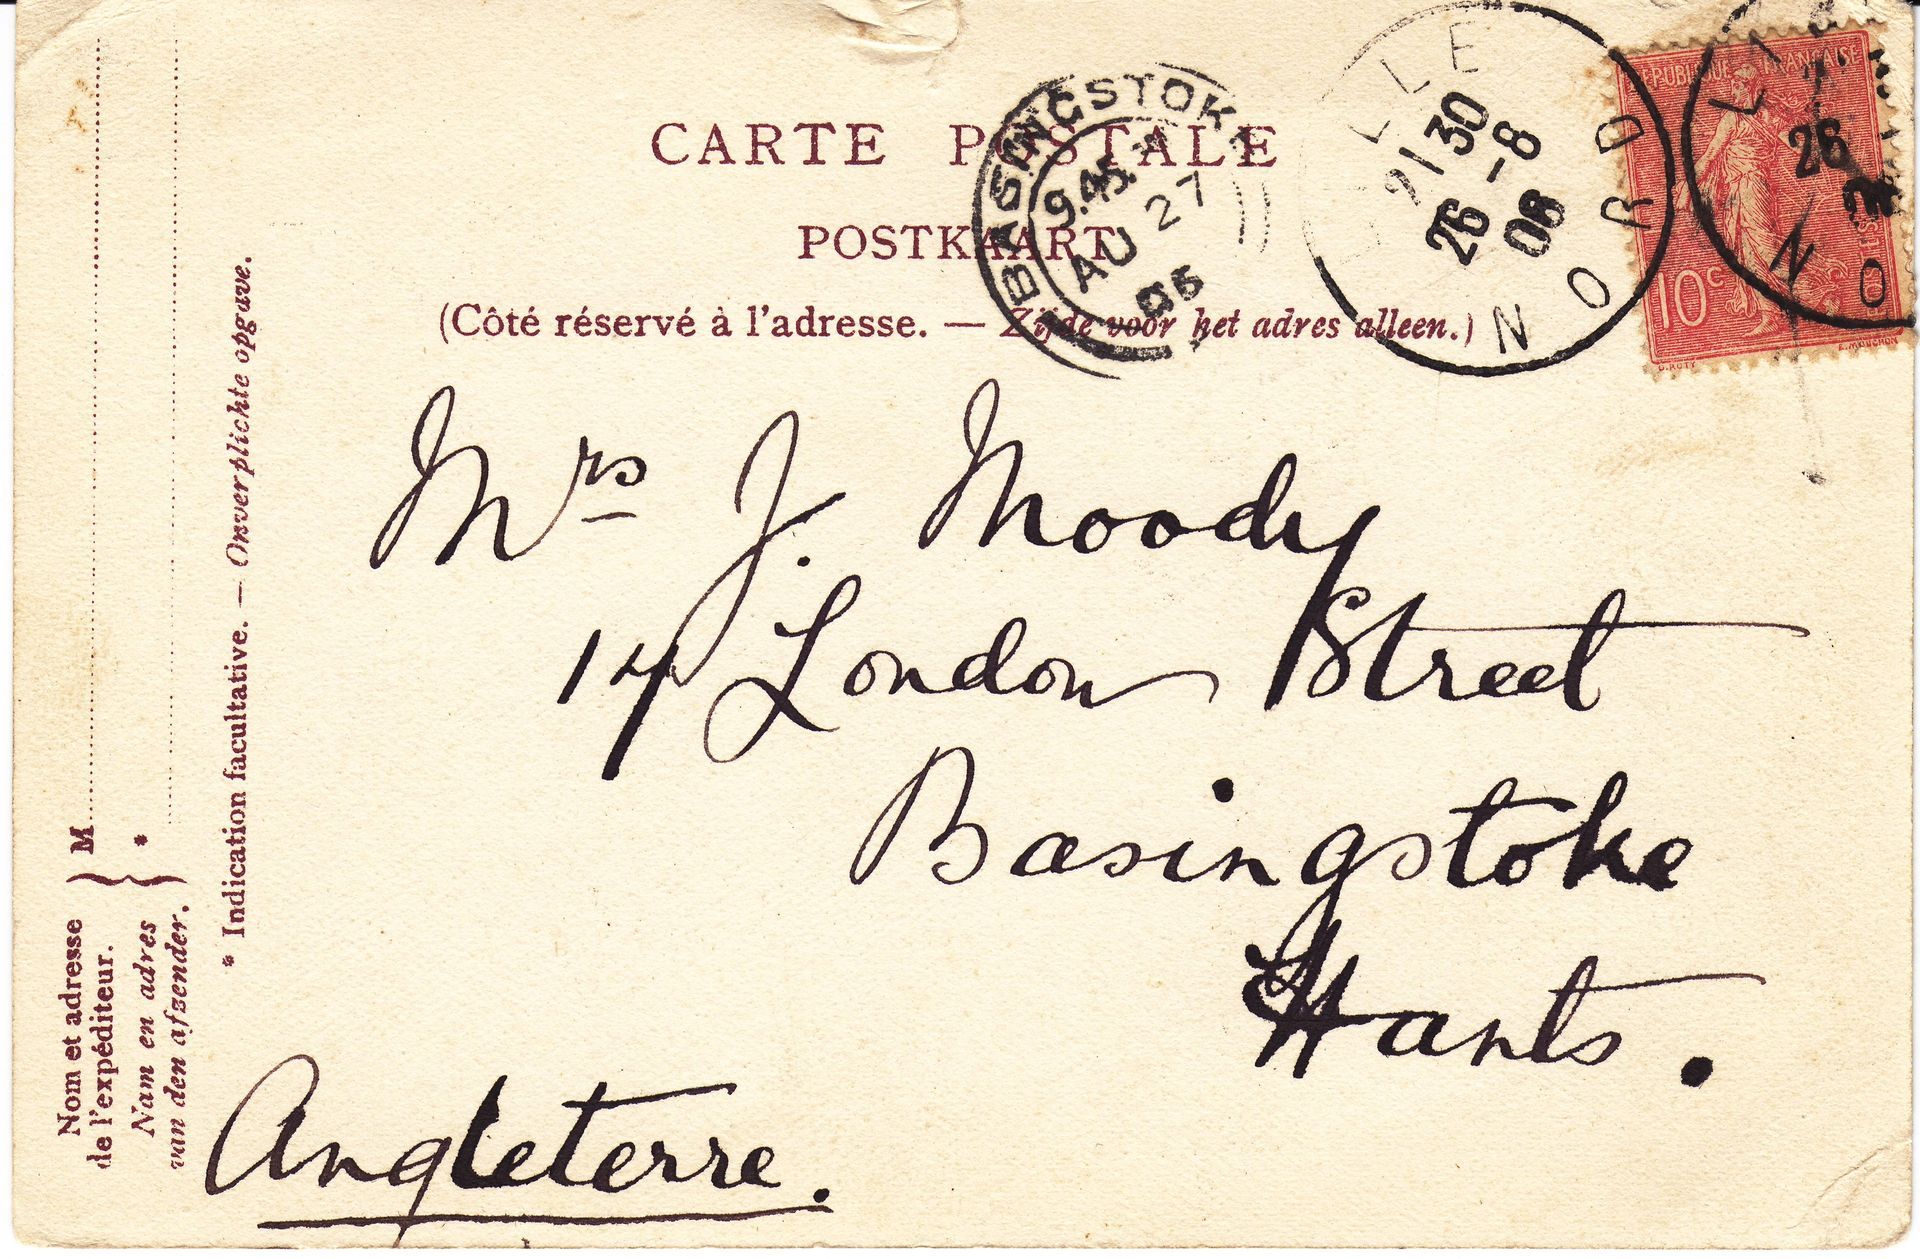 CARTE POSTALE
POSTKAART
(Côté réservé à l'adresse. — Zijde voor het adres alleen.)
BASINGSTOKE
9.45
AU 27
06
LILLE
21 30
26 - 8
06
NORD
REPUBLIQUE FRANÇAISE
10c
O. ROTY
E. MOUCHON
26
NO
Mrs J. Moody
17 London Street
Basingstoke
Hants.
Angleterre.
Nom et adresse
de l'expéditeur.
Nam en adres
van den afzender.
M
*
* Indication facultative. — Onverplichte opgave.